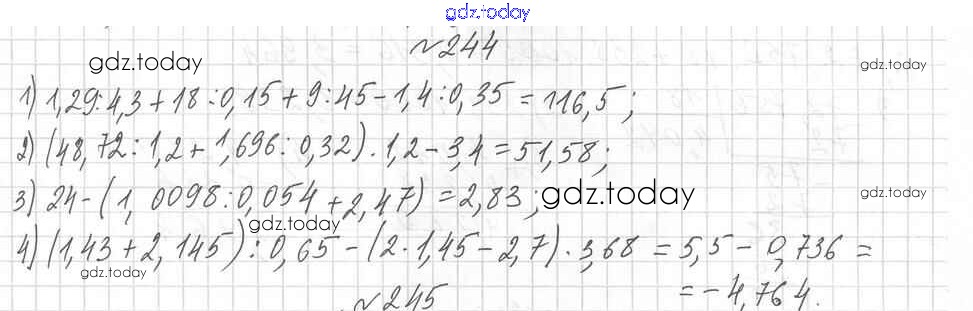 gdz.today
№244
gdz.today
gdz.today
1) 1,29:4,3+18:0,15+9:45-1,4:0,35=116,5;
2) (48,72:1,2+1,696:0,32)·1,2-3,4=51,58;
3) 24-(1,0098:0,054+2,47)=2,83;
gdz.today
gdz.today
gdz.today
4) (1,43+2,145):0,65-(2·1,45-2,7)·3,68=5,5-0,736=
gdz.today
=-4,764.
№245